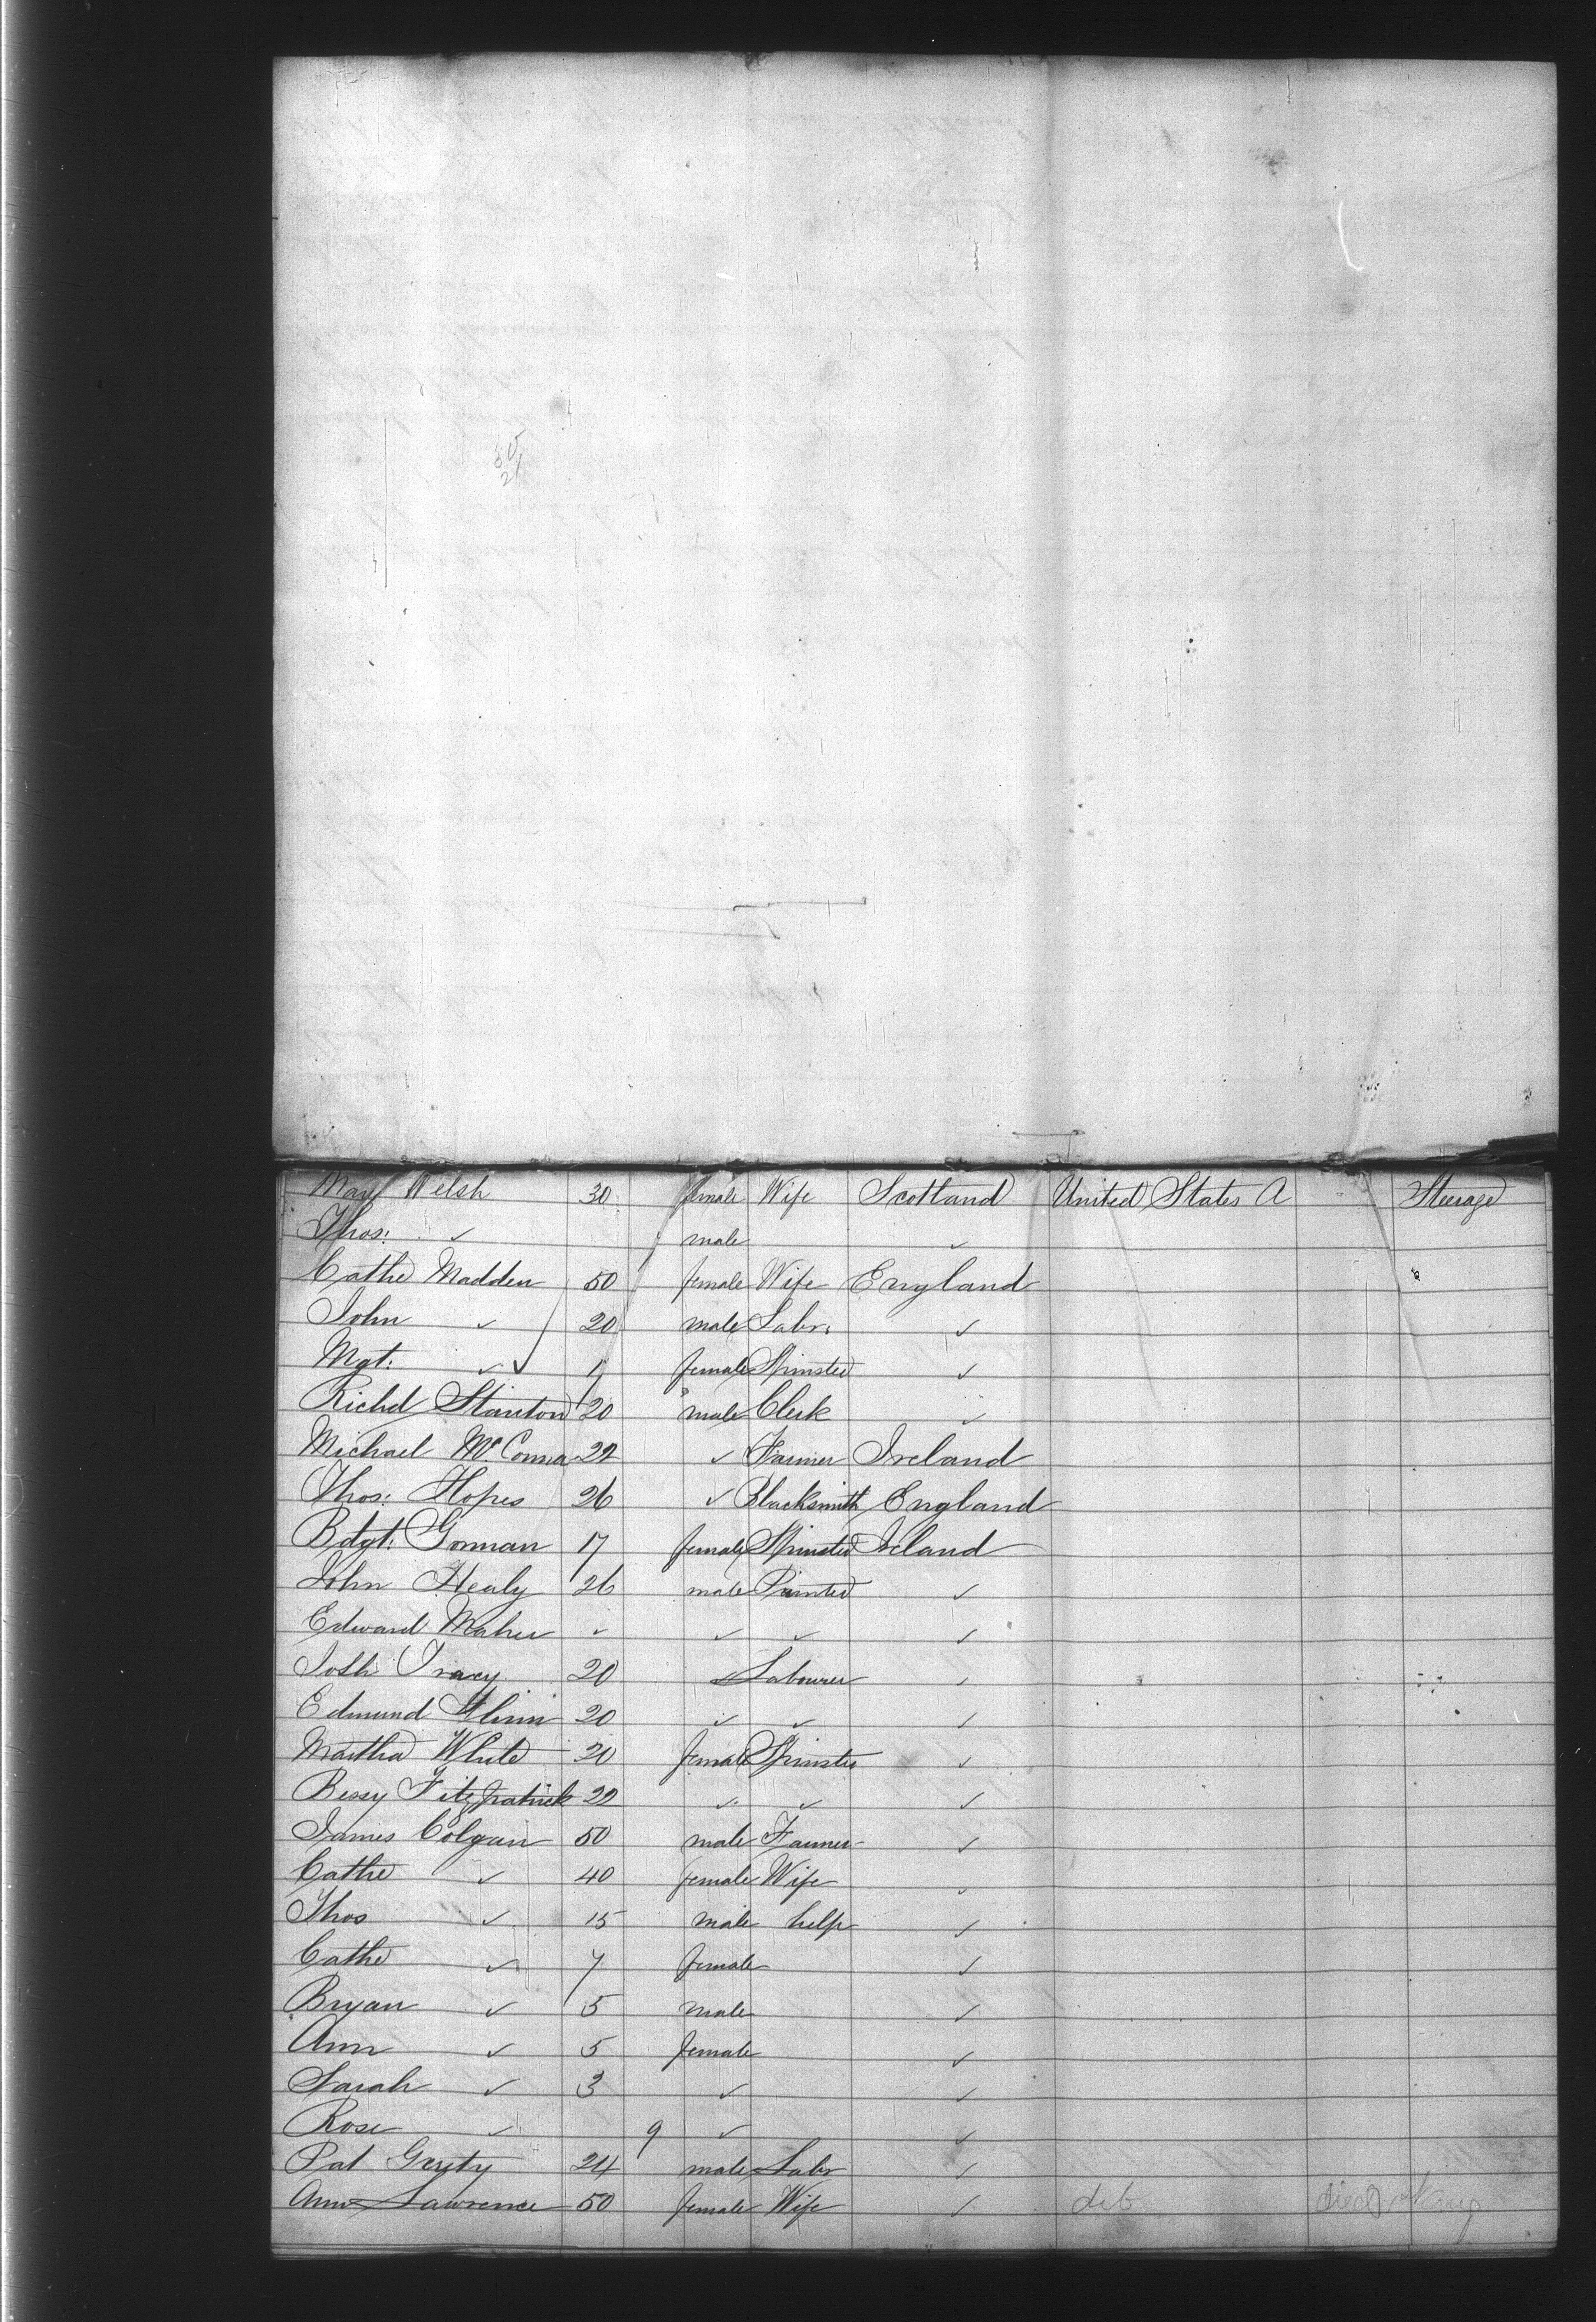 Mary Welsh 30 female Wife Scotland United States A Steerage
Thos: ✓ male ✓
Cathe Madden 50 female Wife England
John ✓ 20 male Labr. ✓
Mgt: ✓ 17 female Spinster ✓
Richd Stanton 20 male Clerk ✓
Michael McConna 22 ✓ Farmer Ireland
Thos: Hopes 26 ✓ Blacksmith England
Bdgt: Gorman 17 female Spinster Ireland
John Healy 26 male Printer ✓
Edward Maher ✓ ✓ ✓ ✓
Joth Tracy 20 ✓ Labourer ✓
Edmund 20 ✓ ✓ ✓
Martha White 20 female Spinster ✓
Bessy Fitzpatrick 22 ✓ ✓ ✓
James Colgan 50 male Farmer ✓
Cathe ✓ 40 female Wife ✓
Thos ✓ 15 male help ✓
Cathe ✓ 7 female ✓
Bryan ✓ 5 male ✓
Ann ✓ 5 female ✓
Sarah ✓ 3 ✓ ✓
Rose ✓ 9 ✓ ✓
Pat 24 male Labr ✓
Ann Lawrence 50 female Wife ✓ died